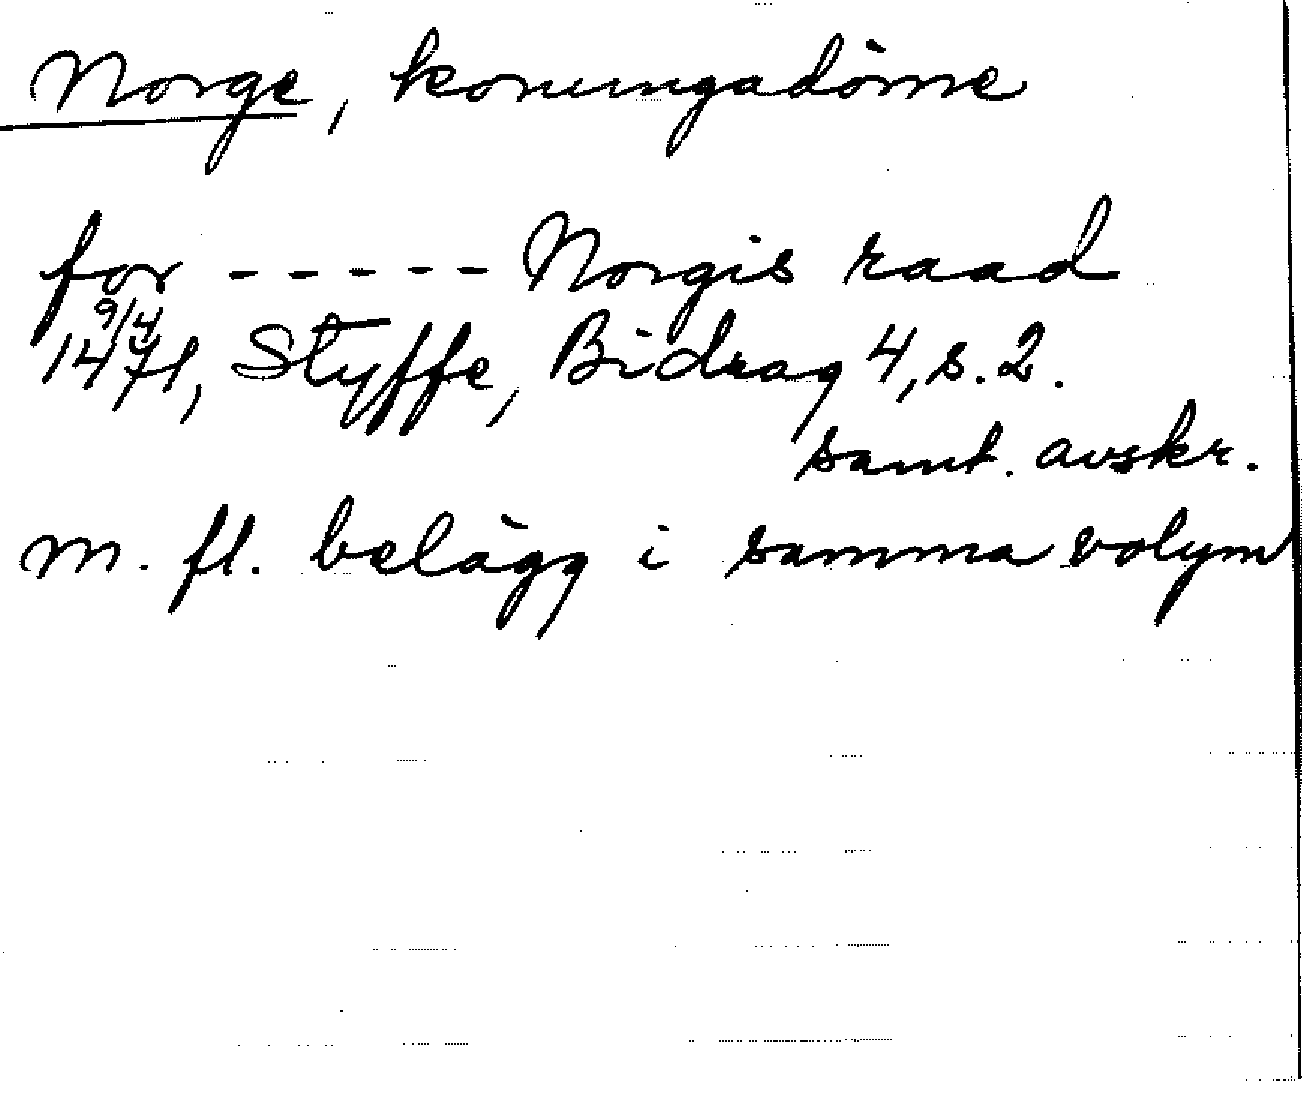 Norge, konungadöme
for ----- Norgis raad
9/4
1471, Styffe, Bidrag 4, s. 2.
samt. avskr.
m. fl. belägg i samma volym